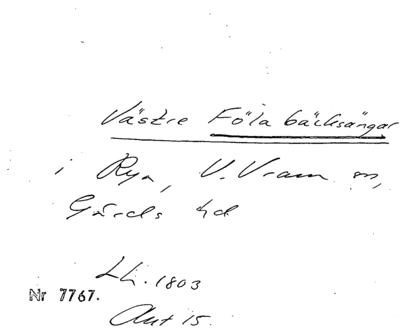 Västre Fölabäcksängar
i Rya, V. Vram sn,
Gärds hd
Lh. 1803
Nr 7767.
Akt 15.